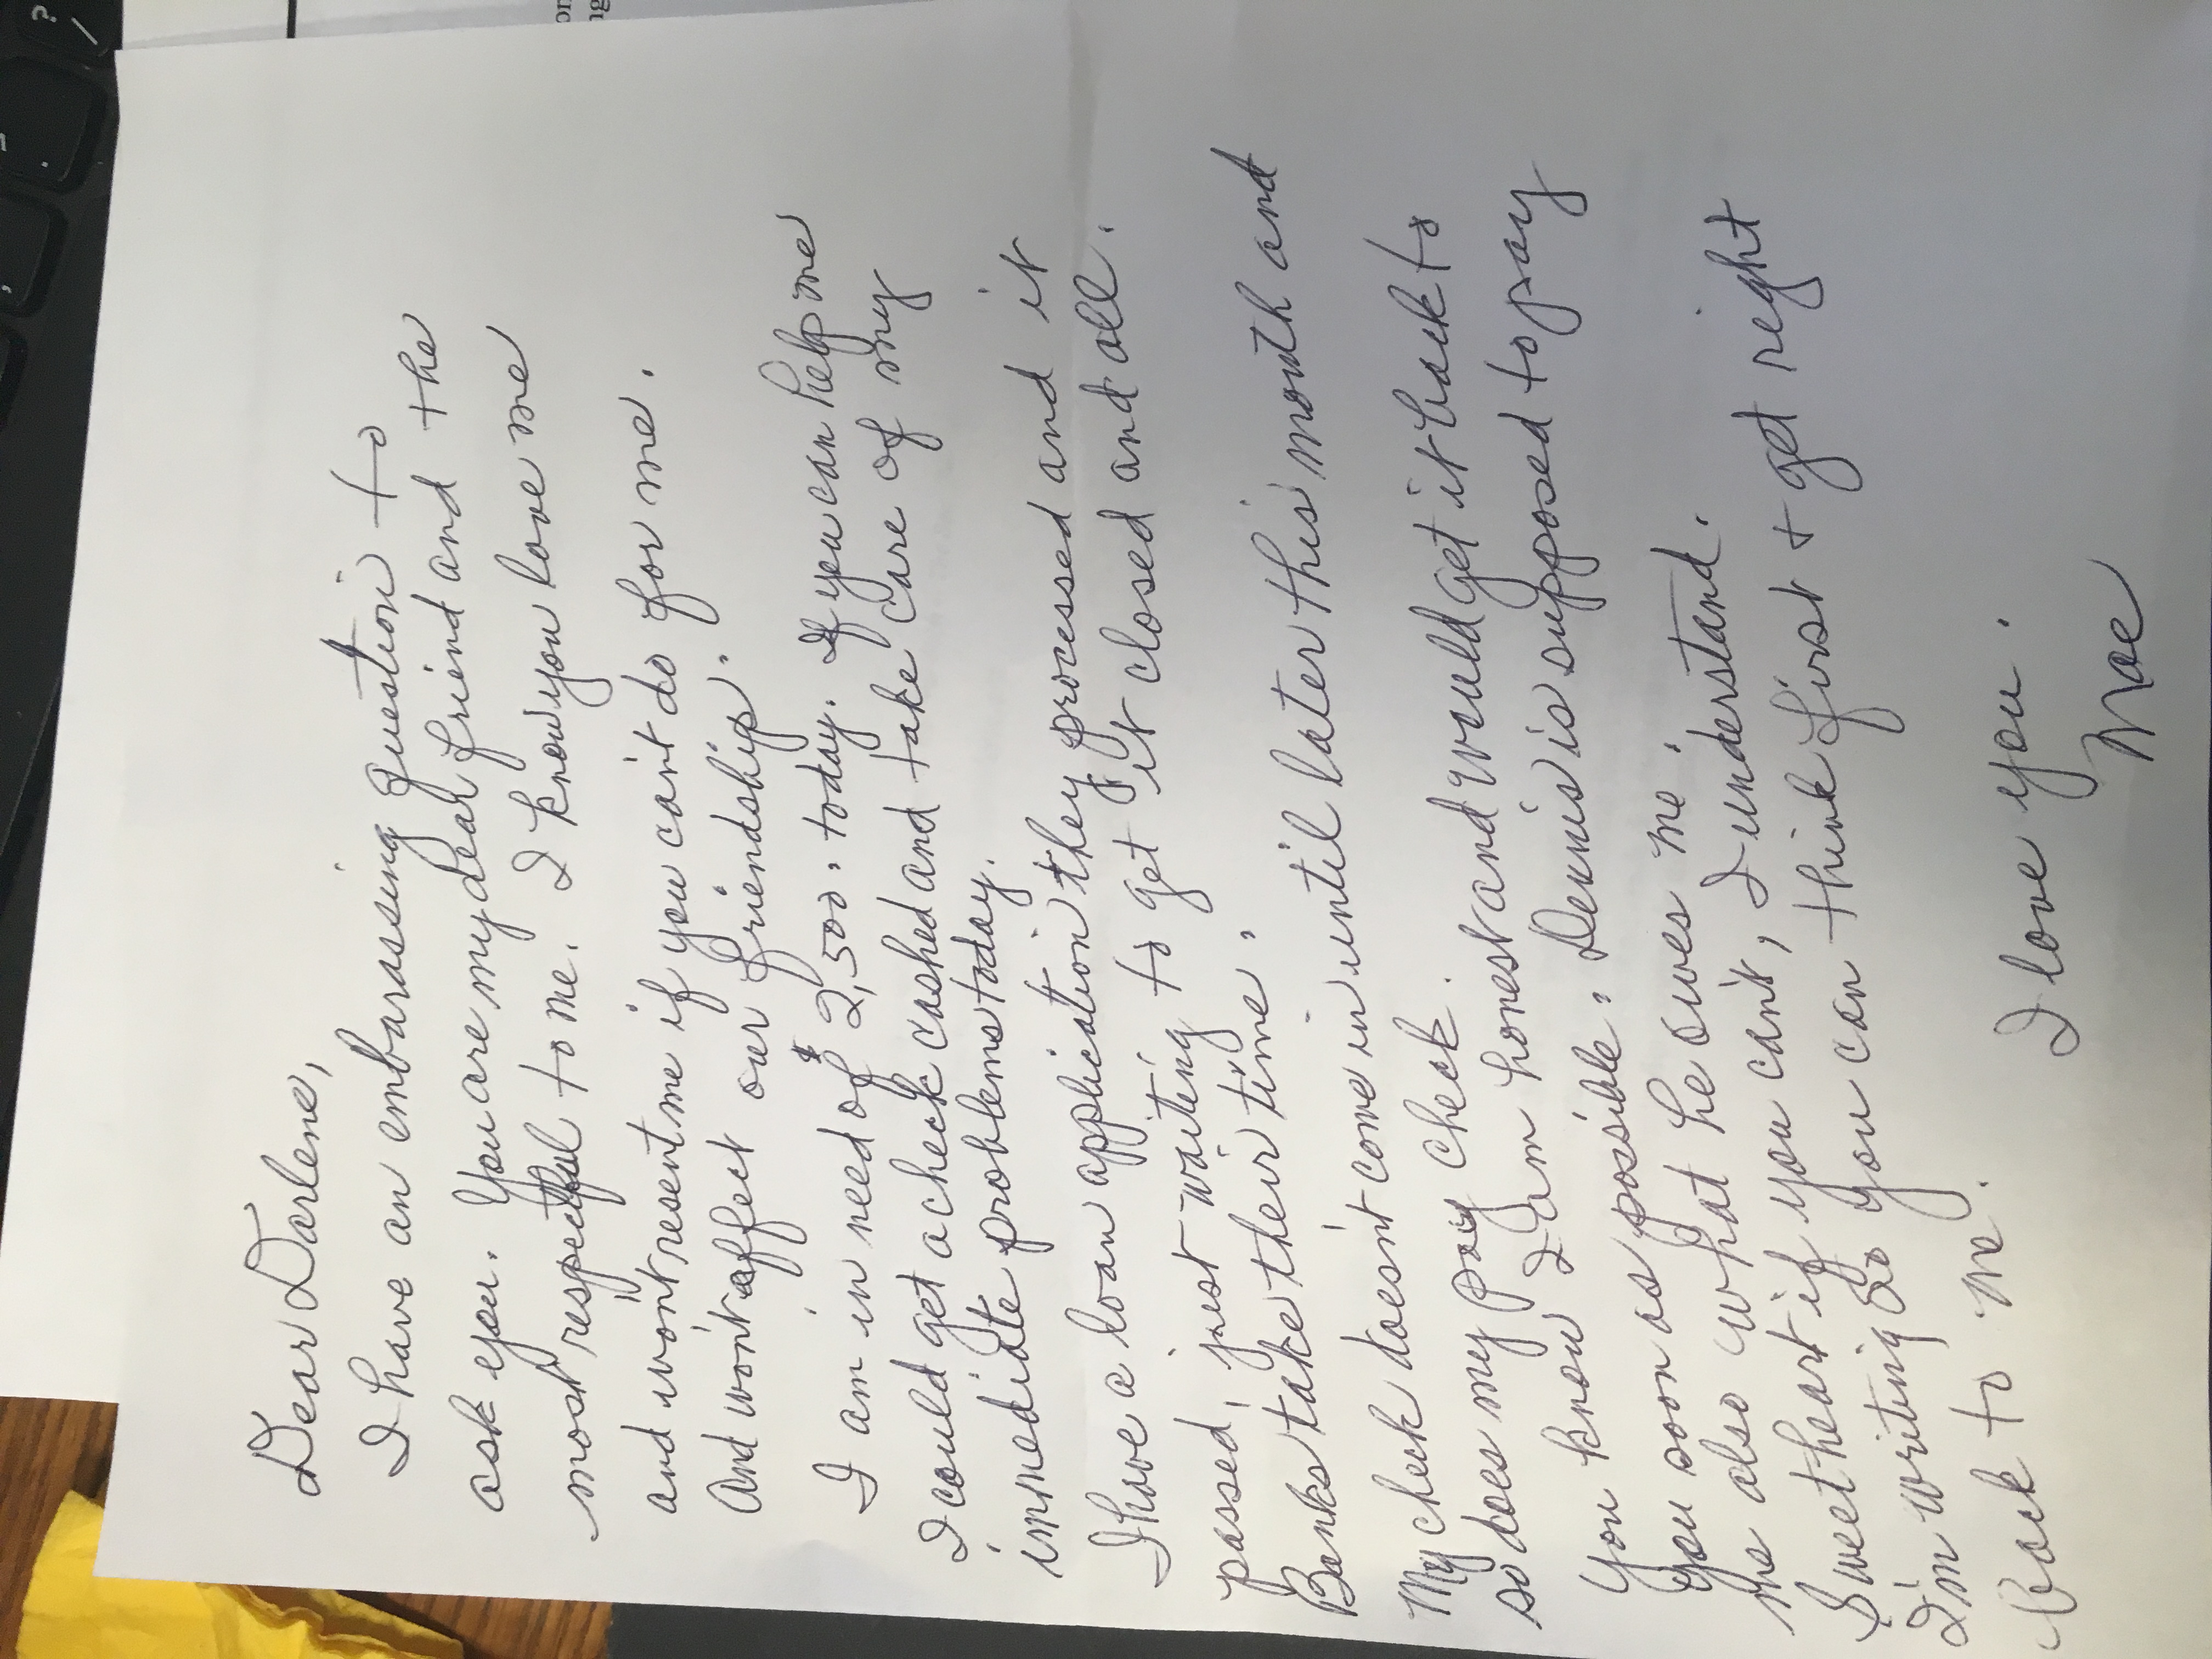 Dear Darlene,
I have an embarassing question to
ask you. You are my dear friend and the
most respectful to me. I know you love me
and won't resent me if you can't do for me.
And won't affect our friendship.
I am in need of $2,500. today. If you can help me
I could get a check cashed and take care of my
immediate problems today.
I have a loan application they processed and it
passed, just waiting to get it closed and all.
Banks take their time.
My check doesn't come in until later this month and
so does my pay check.
You know I am honest and would get it back to
you soon as possible. Dennis is supposed to pay
me also what he owes me.
Sweetheart if you can't, I understand.
I'm writing so you can think first + get right
back to me.
I love you.
Mae
? /
.
,
on
ng